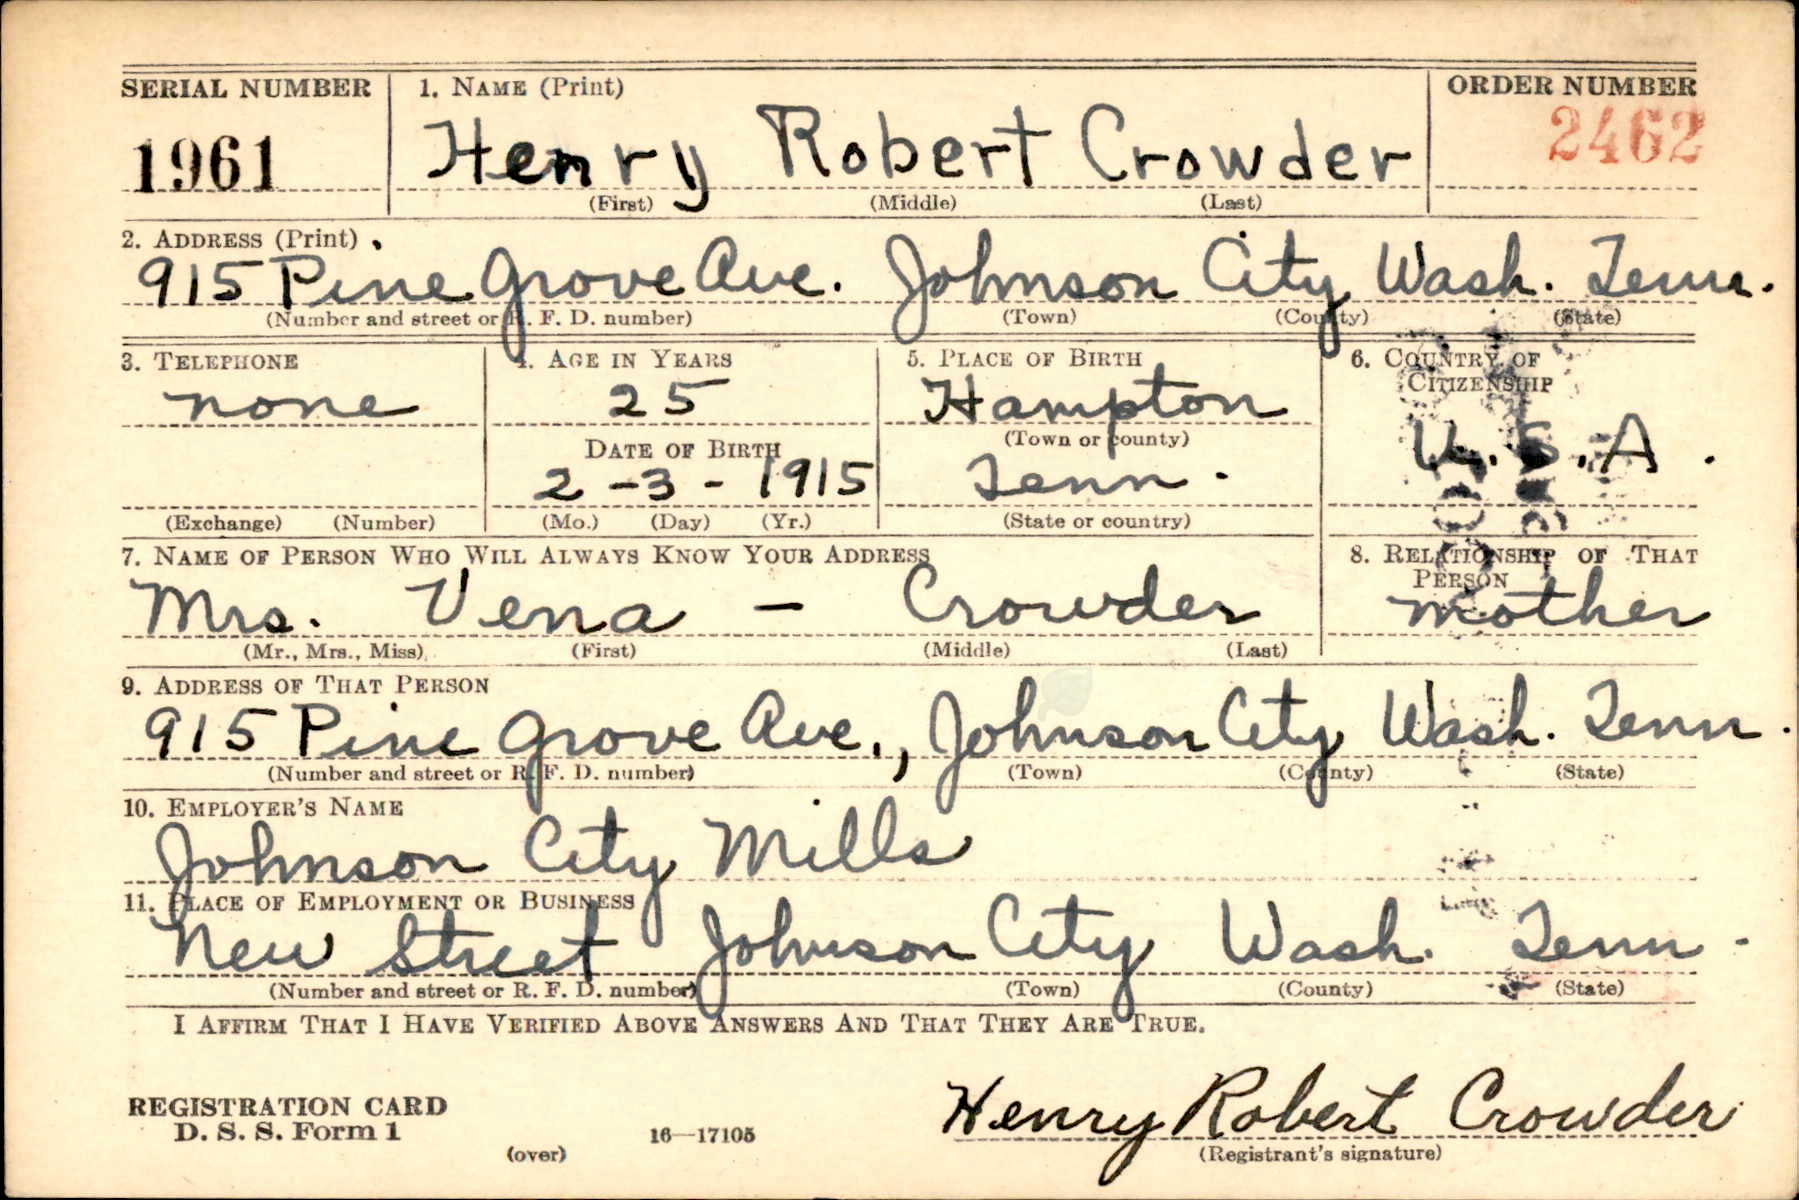 SERIAL NUMBER 1. NAME (Print) ORDER NUMBER
1961 Henry Robert Crowder 2462
(First) (Middle) (Last)
2. ADDRESS (Print)
915 Pine Grove Ave. Johnson City Wash. Tenn.
(Number and street or R. F. D. number) (Town) (County) (State)
3. TELEPHONE 4. AGE IN YEARS 5. PLACE OF BIRTH 6. COUNTRY OF
CITIZENSHIP
none 25 Hampton
DATE OF BIRTH (Town or county) U.S.A.
2-3-1915 Tenn.
(Exchange) (Number) (Mo.) (Day) (Yr.) (State or country)
7. NAME OF PERSON WHO WILL ALWAYS KNOW YOUR ADDRESS 8. RELATIONSHIP OF THAT
PERSON
Mrs. Vena - Crowder mother
(Mr., Mrs., Miss) (First) (Middle) (Last)
9. ADDRESS OF THAT PERSON
915 Pine Grove Ave., Johnson City Wash. Tenn.
(Number and street or R. F. D. number) (Town) (County) (State)
10. EMPLOYER'S NAME
Johnson City Mills
11. PLACE OF EMPLOYMENT OR BUSINESS
New Street Johnson City Wash. Tenn.
(Number and street or R. F. D. number) (Town) (County) (State)
I AFFIRM THAT I HAVE VERIFIED ABOVE ANSWERS AND THAT THEY ARE TRUE.
REGISTRATION CARD
D. S. S. Form 1 16—17105 Henry Robert Crowder
(over) (Registrant's signature)